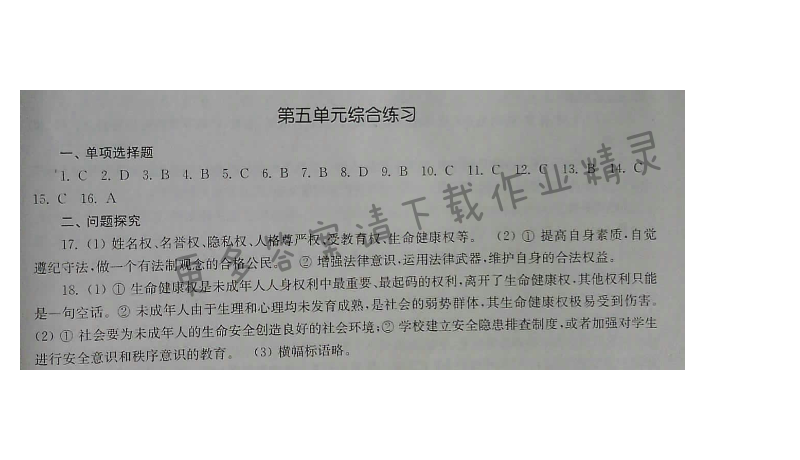 第五单元综合练习
一、单项选择题
1. C 2. D 3. B 4. B 5. C 6. B 7. B 8. D 9. B 10. C 11. C 12. C 13. B 14. C
15. C 16. A
二、问题探究
17. (1) 姓名权、名誉权、隐私权、人格尊严权、受教育权、生命健康权等。 (2) ① 提高自身素质,自觉
遵纪守法,做一个有法制观念的合格公民。 ② 增强法律意识,运用法律武器,维护自身的合法权益。
18. (1) ① 生命健康权是未成年人人身权利中最重要、最起码的权利,离开了生命健康权,其他权利只能
是一句空话。② 未成年人由于生理和心理均未发育成熟,是社会的弱势群体,其生命健康权极易受到伤害。
(2) ① 社会要为未成年人的生命安全创造良好的社会环境;② 学校建立安全隐患排查制度,或者加强对学生
进行安全意识和秩序意识的教育。 (3) 横幅标语略。
更多答案请下载作业精灵